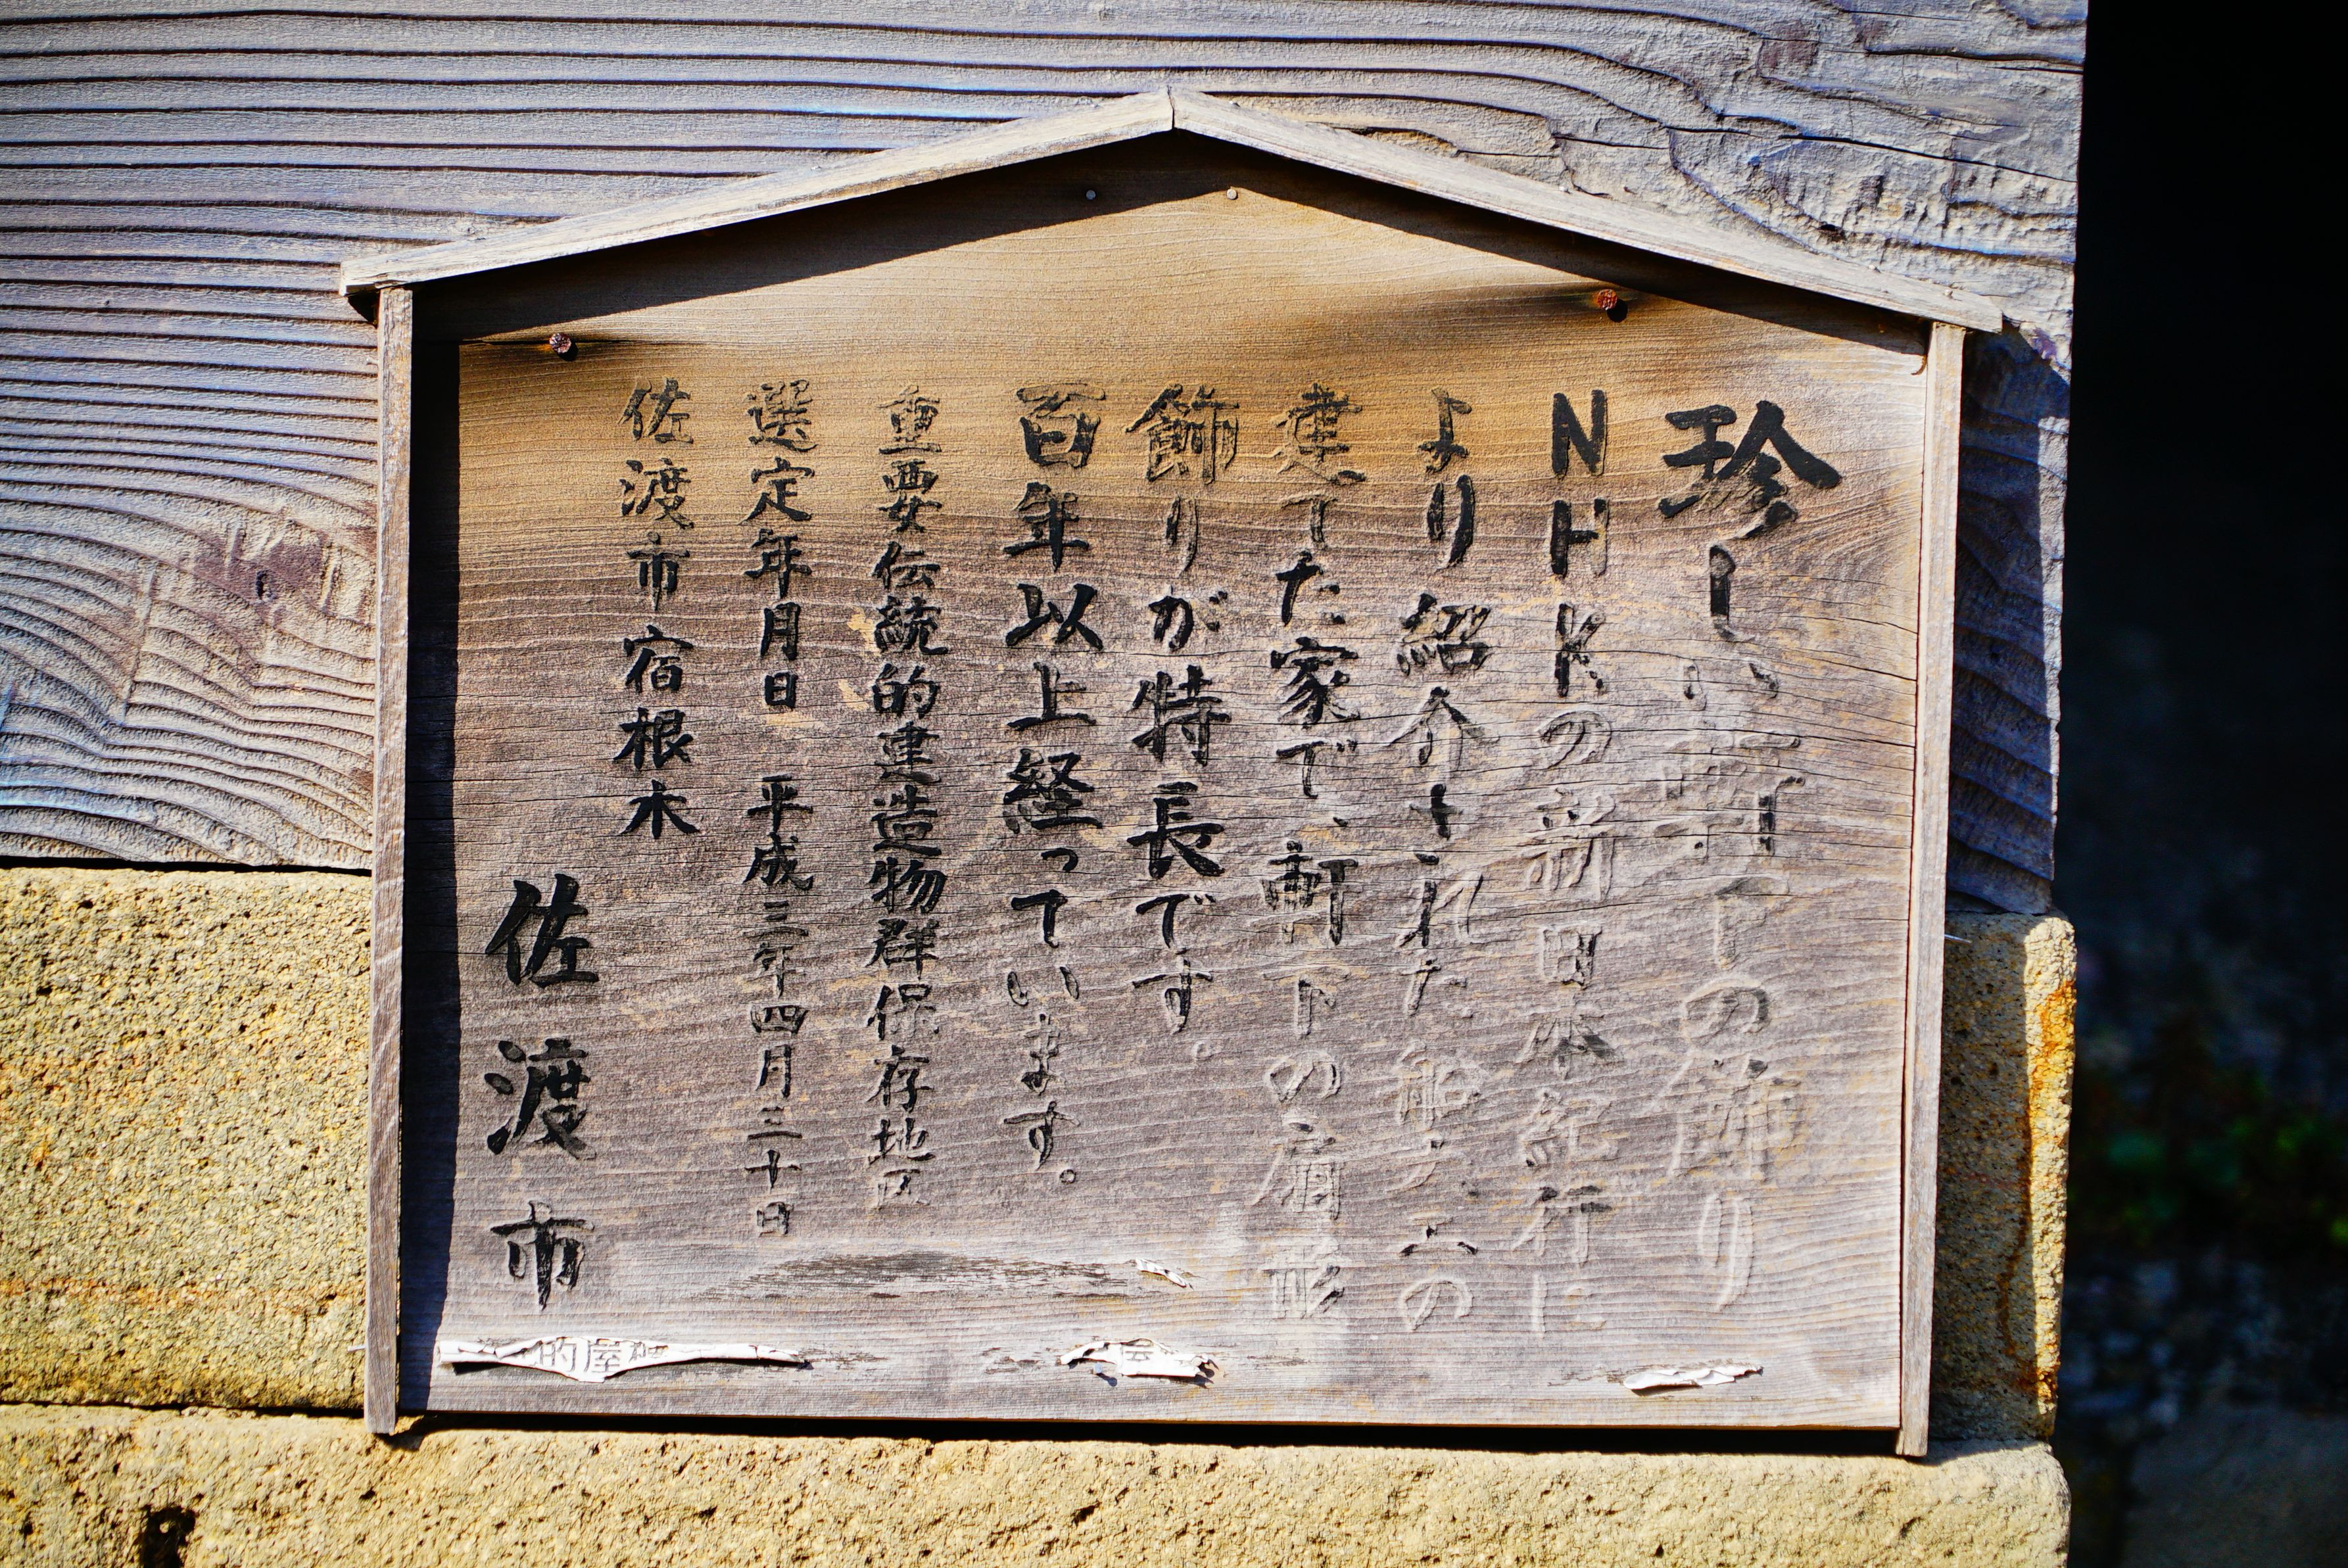 珍しい軒下の飾り
NHKの新日本紀行に
より紹介された船大工の
建てた家で、軒下の扇形
飾りが特長です。
百年以上経っています。
重要伝統的建造物群保存地区
選定年月日 平成三年四月三十日
佐渡市宿根木
佐渡市
的屋